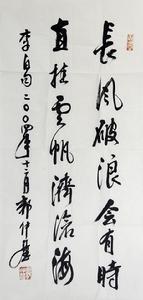 長風破浪会有時
直挂雲帆濟滄海
李白句二〇〇四年十二月郭仲選